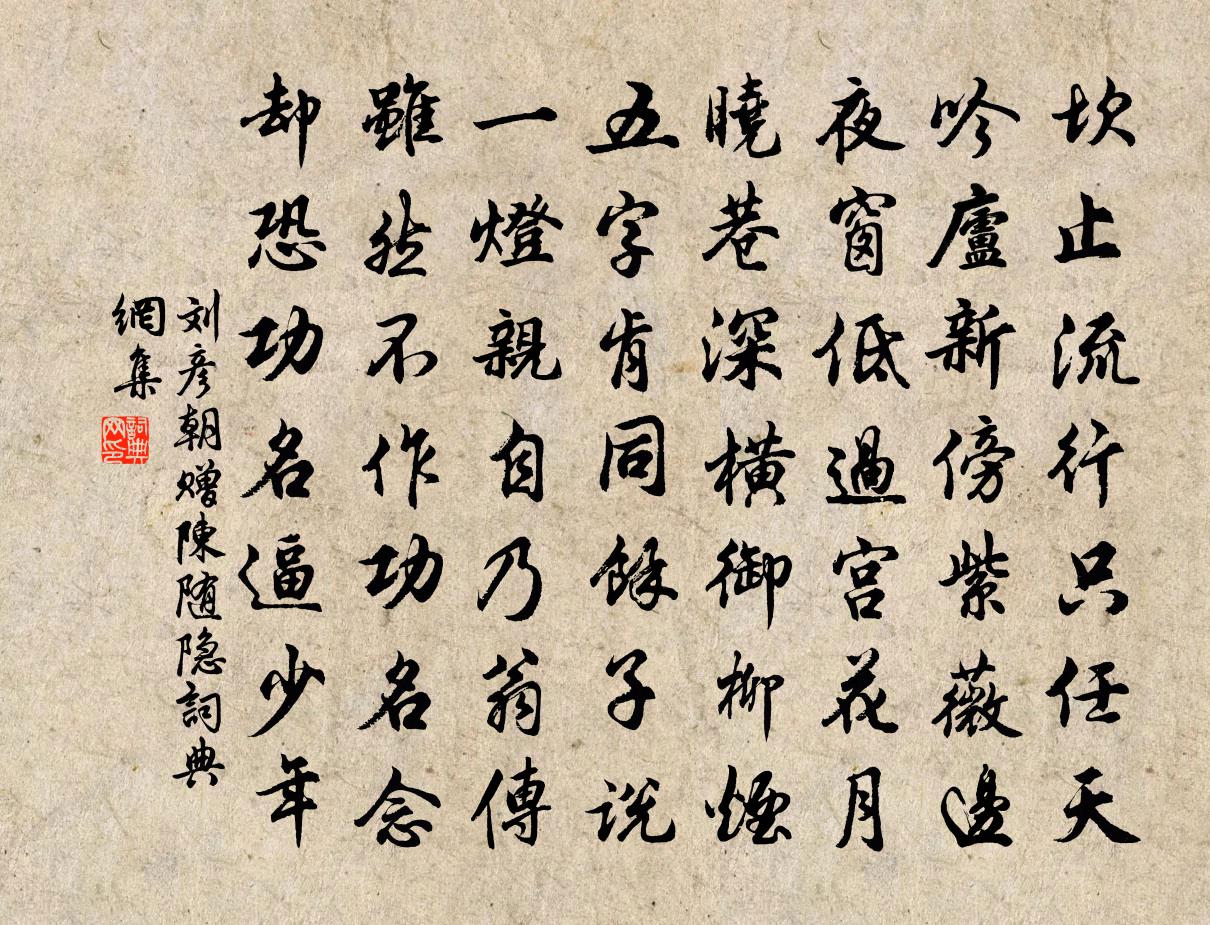 坎止流行只任天
吟廬新傍紫薇邊
夜窗低過宮花月
曉巷深橫御柳煙
五字肯同餘子說
一燈親自乃翁傳
雖然不作功名念
却恐功名逼少年
刘彦朝赠陳随隐詞典
網集
詞典
网印